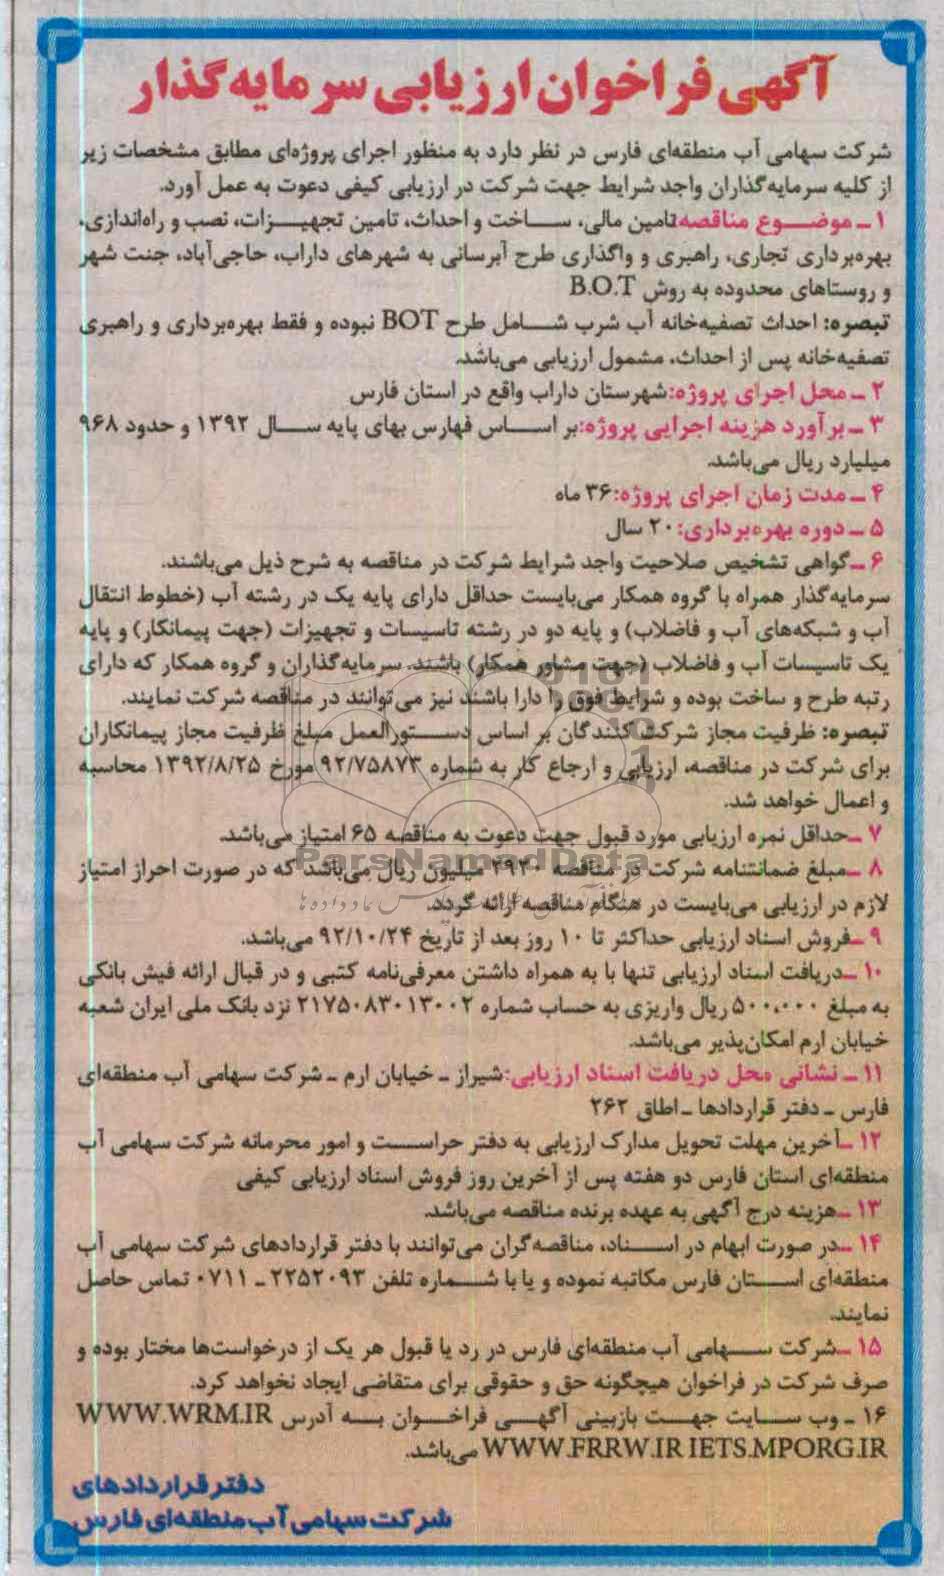 آگهی فراخوان ارزیابی سرمایه‌گذار
شرکت سهامی آب منطقه‌ای فارس در نظر دارد به منظور اجرای پروژه‌ای مطابق مشخصات زیر
از کلیه سرمایه‌گذاران واجد شرایط جهت شرکت در ارزیابی کیفی دعوت به عمل آورد.
۱ ـ موضوع مناقصه:تامین مالی، ساخت و احداث، تامین تجهیزات، نصب و راه‌اندازی،
بهره‌برداری تجاری، راهبری و واگذاری طرح آبرسانی به شهرهای داراب، حاجی‌آباد، جنت شهر
و روستاهای محدوده به روش B.O.T
تبصره: احداث تصفیه‌خانه آب شرب شامل طرح BOT نبوده و فقط بهره‌برداری و راهبری
تصفیه‌خانه پس از احداث، مشمول ارزیابی می‌باشد.
۲ ـ محل اجرای پروژه:شهرستان داراب واقع در استان فارس
۳ ـ برآورد هزینه اجرایی پروژه:بر اساس فهارس بهای پایه سال ۱۳۹۲ و حدود ۹۶۸
میلیارد ریال می‌باشد.
۴ ـ مدت زمان اجرای پروژه:۳۶ ماه
۵ ـ دوره بهره‌برداری:۲۰ سال
۶ ـ گواهی تشخیص صلاحیت واجد شرایط شرکت در مناقصه به شرح ذیل می‌باشند.
سرمایه‌گذار همراه با گروه همکار می‌بایست حداقل دارای پایه یک در رشته آب (خطوط انتقال
آب و شبکه‌های آب و فاضلاب) و پایه دو در رشته تاسیسات و تجهیزات (جهت پیمانکار) و پایه
یک تاسیسات آب و فاضلاب (جهت مشاور همکار) باشند. سرمایه‌گذاران و گروه همکار که دارای
رتبه طرح و ساخت بوده و شرایط فوق را دارا باشند نیز می‌توانند در مناقصه شرکت نمایند.
تبصره: ظرفیت مجاز شرکت کنندگان بر اساس دستورالعمل مبلغ ظرفیت مجاز پیمانکاران
برای شرکت در مناقصه، ارزیابی و ارجاع کار به شماره ۹۲/۷۵۸۷۳ مورخ ۱۳۹۲/۸/۲۵ محاسبه
و اعمال خواهد شد.
۷ ـ حداقل نمره ارزیابی مورد قبول جهت دعوت به مناقصه ۶۵ امتیاز می‌باشد.
۸ ـ مبلغ ضمانتنامه شرکت در مناقصه ۲۹۲۰ میلیون ریال می‌باشد که در صورت احراز امتیاز
لازم در ارزیابی می‌بایست در هنگام مناقصه ارائه گردد.
۹ ـ فروش اسناد ارزیابی حداکثر تا ۱۰ روز بعد از تاریخ ۹۲/۱۰/۲۴ می‌باشد.
۱۰ ـ دریافت اسناد ارزیابی تنها با به همراه داشتن معرفی‌نامه کتبی و در قبال ارائه فیش بانکی
به مبلغ ۵۰۰،۰۰۰ ریال واریزی به حساب شماره ۲۱۷۵۰۸۳۰۱۳۰۰۲ نزد بانک ملی ایران شعبه
خیابان ارم امکان‌پذیر می‌باشد.
۱۱ ـ نشانی محل دریافت اسناد ارزیابی:شیراز ـ خیابان ارم ـ شرکت سهامی آب منطقه‌ای
فارس ـ دفتر قراردادها ـ اطاق ۲۶۲
۱۲ ـ آخرین مهلت تحویل مدارک ارزیابی به دفتر حراست و امور محرمانه شرکت سهامی آب
منطقه‌ای استان فارس دو هفته پس از آخرین روز فروش اسناد ارزیابی کیفی
۱۳ ـ هزینه درج آگهی به عهده برنده مناقصه می‌باشد.
۱۴ ـ در صورت ابهام در اسناد، مناقصه‌گران می‌توانند با دفتر قراردادهای شرکت سهامی آب
منطقه‌ای استان فارس مکاتبه نموده و یا با شماره تلفن ۲۲۵۲۰۹۳ ـ ۰۷۱۱ تماس حاصل
نمایند.
۱۵ ـ شرکت سهامی آب منطقه‌ای فارس در رد یا قبول هر یک از درخواست‌ها مختار بوده و
صرف شرکت در فراخوان هیچگونه حق و حقوقی برای متقاضی ایجاد نخواهد کرد.
۱۶ ـ وب سایت جهت بازبینی آگهی فراخوان به آدرس WWW.WRM.IR
WWW.FRRW.IR IETS.MPORG.IR می‌باشد.
دفتر قراردادهای
شرکت سهامی آب منطقه‌ای فارس
ParsNamadData